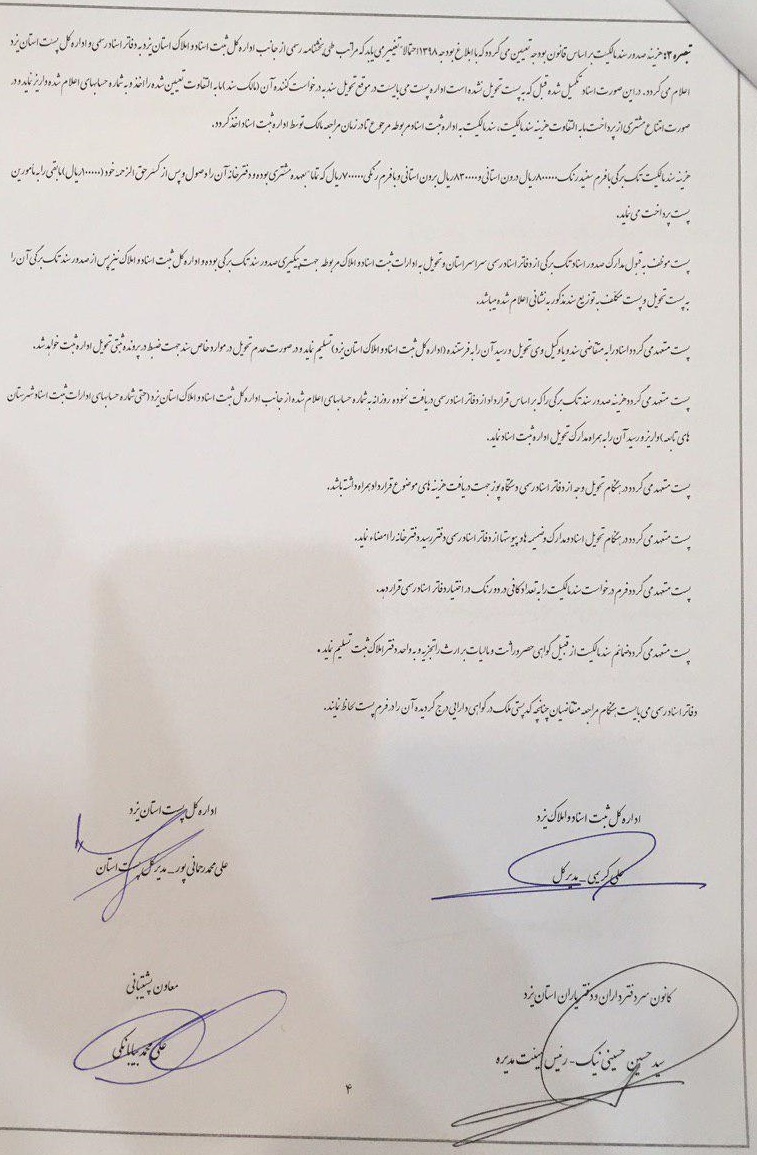 تبصره ۳: هزینه صدور سند مالکیت بر اساس قانون بودجه تعیین می گردد که با ابلاغ بودجه ۱۳۹۸ احتمالا" تغییر می یابد که مراتب طی بخشنامه رسمی از جانب اداره کل ثبت اسناد و املاک استان یزد به دفاتر اسناد رسمی و اداره کل پست استان یزد
اعلام می گردد. در این صورت اسناد تکمیل شده قبل که به پست تحویل نشده است اداره پست می بایست در موقع تحویل سند به درخواست کننده آن (مالک سند) مابه التفاوت تعیین شده را اخذ و به شماره حسابهای اعلام شده واریز نماید و در
صورت امتناع مشتری از پرداخت مابه التفاوت هزینه سند مالکیت، سند مالکیت به اداره ثبت اسناد مربوطه مرجوع تا در زمان مراجعه مالک توسط اداره ثبت اسناد اخذ گردد.
هزینه سند مالکیت تک برگی با فرم سفید رنگ ۸۰۰۰۰۰ ریال درون استانی و ۸۳۰۰۰۰ ریال برون استانی و با فرم رنگی ۷۰۰۰۰۰ ریال که تماما" بعهده مشتری بوده و دفترخانه آن را وصول و پس از کسر حق الزحمه خود (۱۰۰۰۰۰ ریال) مابقی را به مامورین
پست پرداخت می نماید.
پست موظف به قبول مدارک صدور اسناد تک برگی از دفاتر اسناد رسمی سراسر استان و تحویل به ادارات ثبت اسناد و املاک مربوطه جهت پیگیری صدور سند تک برگی بوده و اداره کل ثبت اسناد و املاک نیز پس از صدور سند تک برگی آن را
به پست تحویل و پست مکلف به توزیع سند مذکور به نشانی اعلام شده میباشد.
پست متعهد می گردد اسناد را به متقاضی سند و یا وکیل وی تحویل و رسید آن را به فرستنده (اداره کل ثبت اسناد و املاک استان یزد) تسلیم نماید و در صورت عدم تحویل در موارد خاص سند جهت ضبط در پرونده ثبتی تحویل اداره ثبت خواهد شد.
پست متعهد می گردد هزینه صدور سند تک برگی را که بر اساس قرارداد از دفاتر اسناد رسمی دریافت نموده روزانه به شماره حسابهای اعلام شده از جانب اداره کل ثبت اسناد و املاک استان یزد (حتی شماره حسابهای ادارات ثبت اسناد شهرستان
های تابعه) واریز و رسید آن را به همراه مدارک تحویل اداره ثبت اسناد نماید.
پست متعهد می گردد در هنگام تحویل وجه از دفاتر اسناد رسمی دستگاه پوز جهت دریافت هزینه های موضوع قرارداد همراه داشته باشد.
پست متعهد می گردد در هنگام تحویل اسناد و مدارک و ضمیمه ها و پیوستها از دفاتر اسناد رسمی دفتر رسید دفترخانه را امضاء نماید.
پست متعهد می گردد فرم درخواست سند مالکیت را به تعداد کافی در دو رنگ در اختیار دفاتر اسناد رسمی قرار دهد.
پست متعهد می گردد ضمائم سند مالکیت از قبیل گواهی حصر وراثت و مالیات بر ارث را تجزیه و به واحد دفتر املاک ثبت تسلیم نماید.
دفاتر اسناد رسمی می بایست هنگام مراجعه متقاضیان چنانچه کد پستی ملک در گواهی دارایی درج گردیده آن را در فرم پست لحاظ نمایند.
اداره کل ثبت اسناد و املاک یزد
علی کریمی - مدیرکل
اداره کل پست استان یزد
علی محمد رحمانی پور - مدیر کل پست استان
کانون سردفتران و دفتریاران استان یزد
سید حسین حسینی نیک - رئیس هیئت مدیره
معاون پشتیبانی
علی محمد بیابانکی
۴